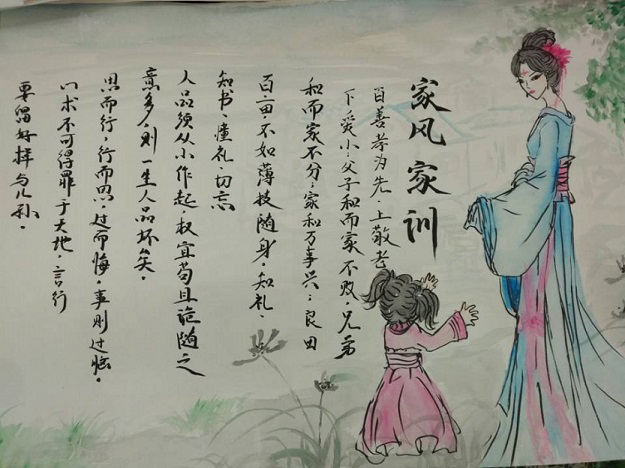 家风家训
百善孝为先。上敬老
下爱小。父子和而家不败。兄弟
和而家不分。家和万事兴：良田
百亩。不如薄技随身。知礼。
知书。懂礼。切忘
人品须从小作起。权宜苟且诡随之
意多。则一生人品坏矣。
思而行。行而思。过而悔。事则过
心术不可得罪于天地。言行
要留好样与儿孙。